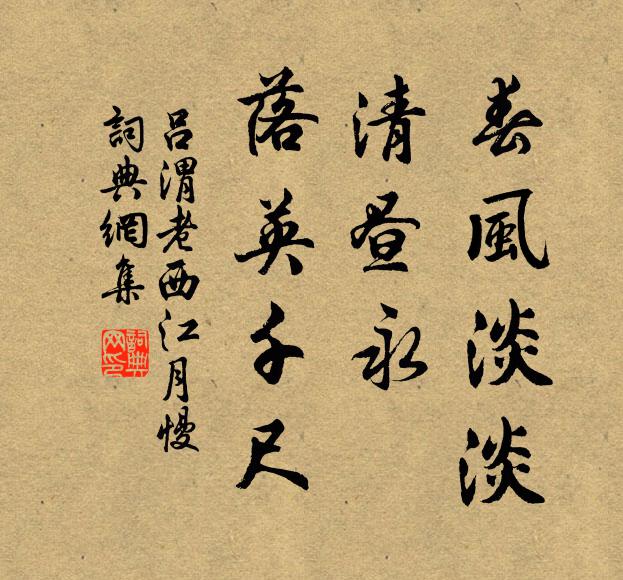 春風淡淡
清昼永
落英千尺
吕渭老西江月慢
詞典網集
詞典網印